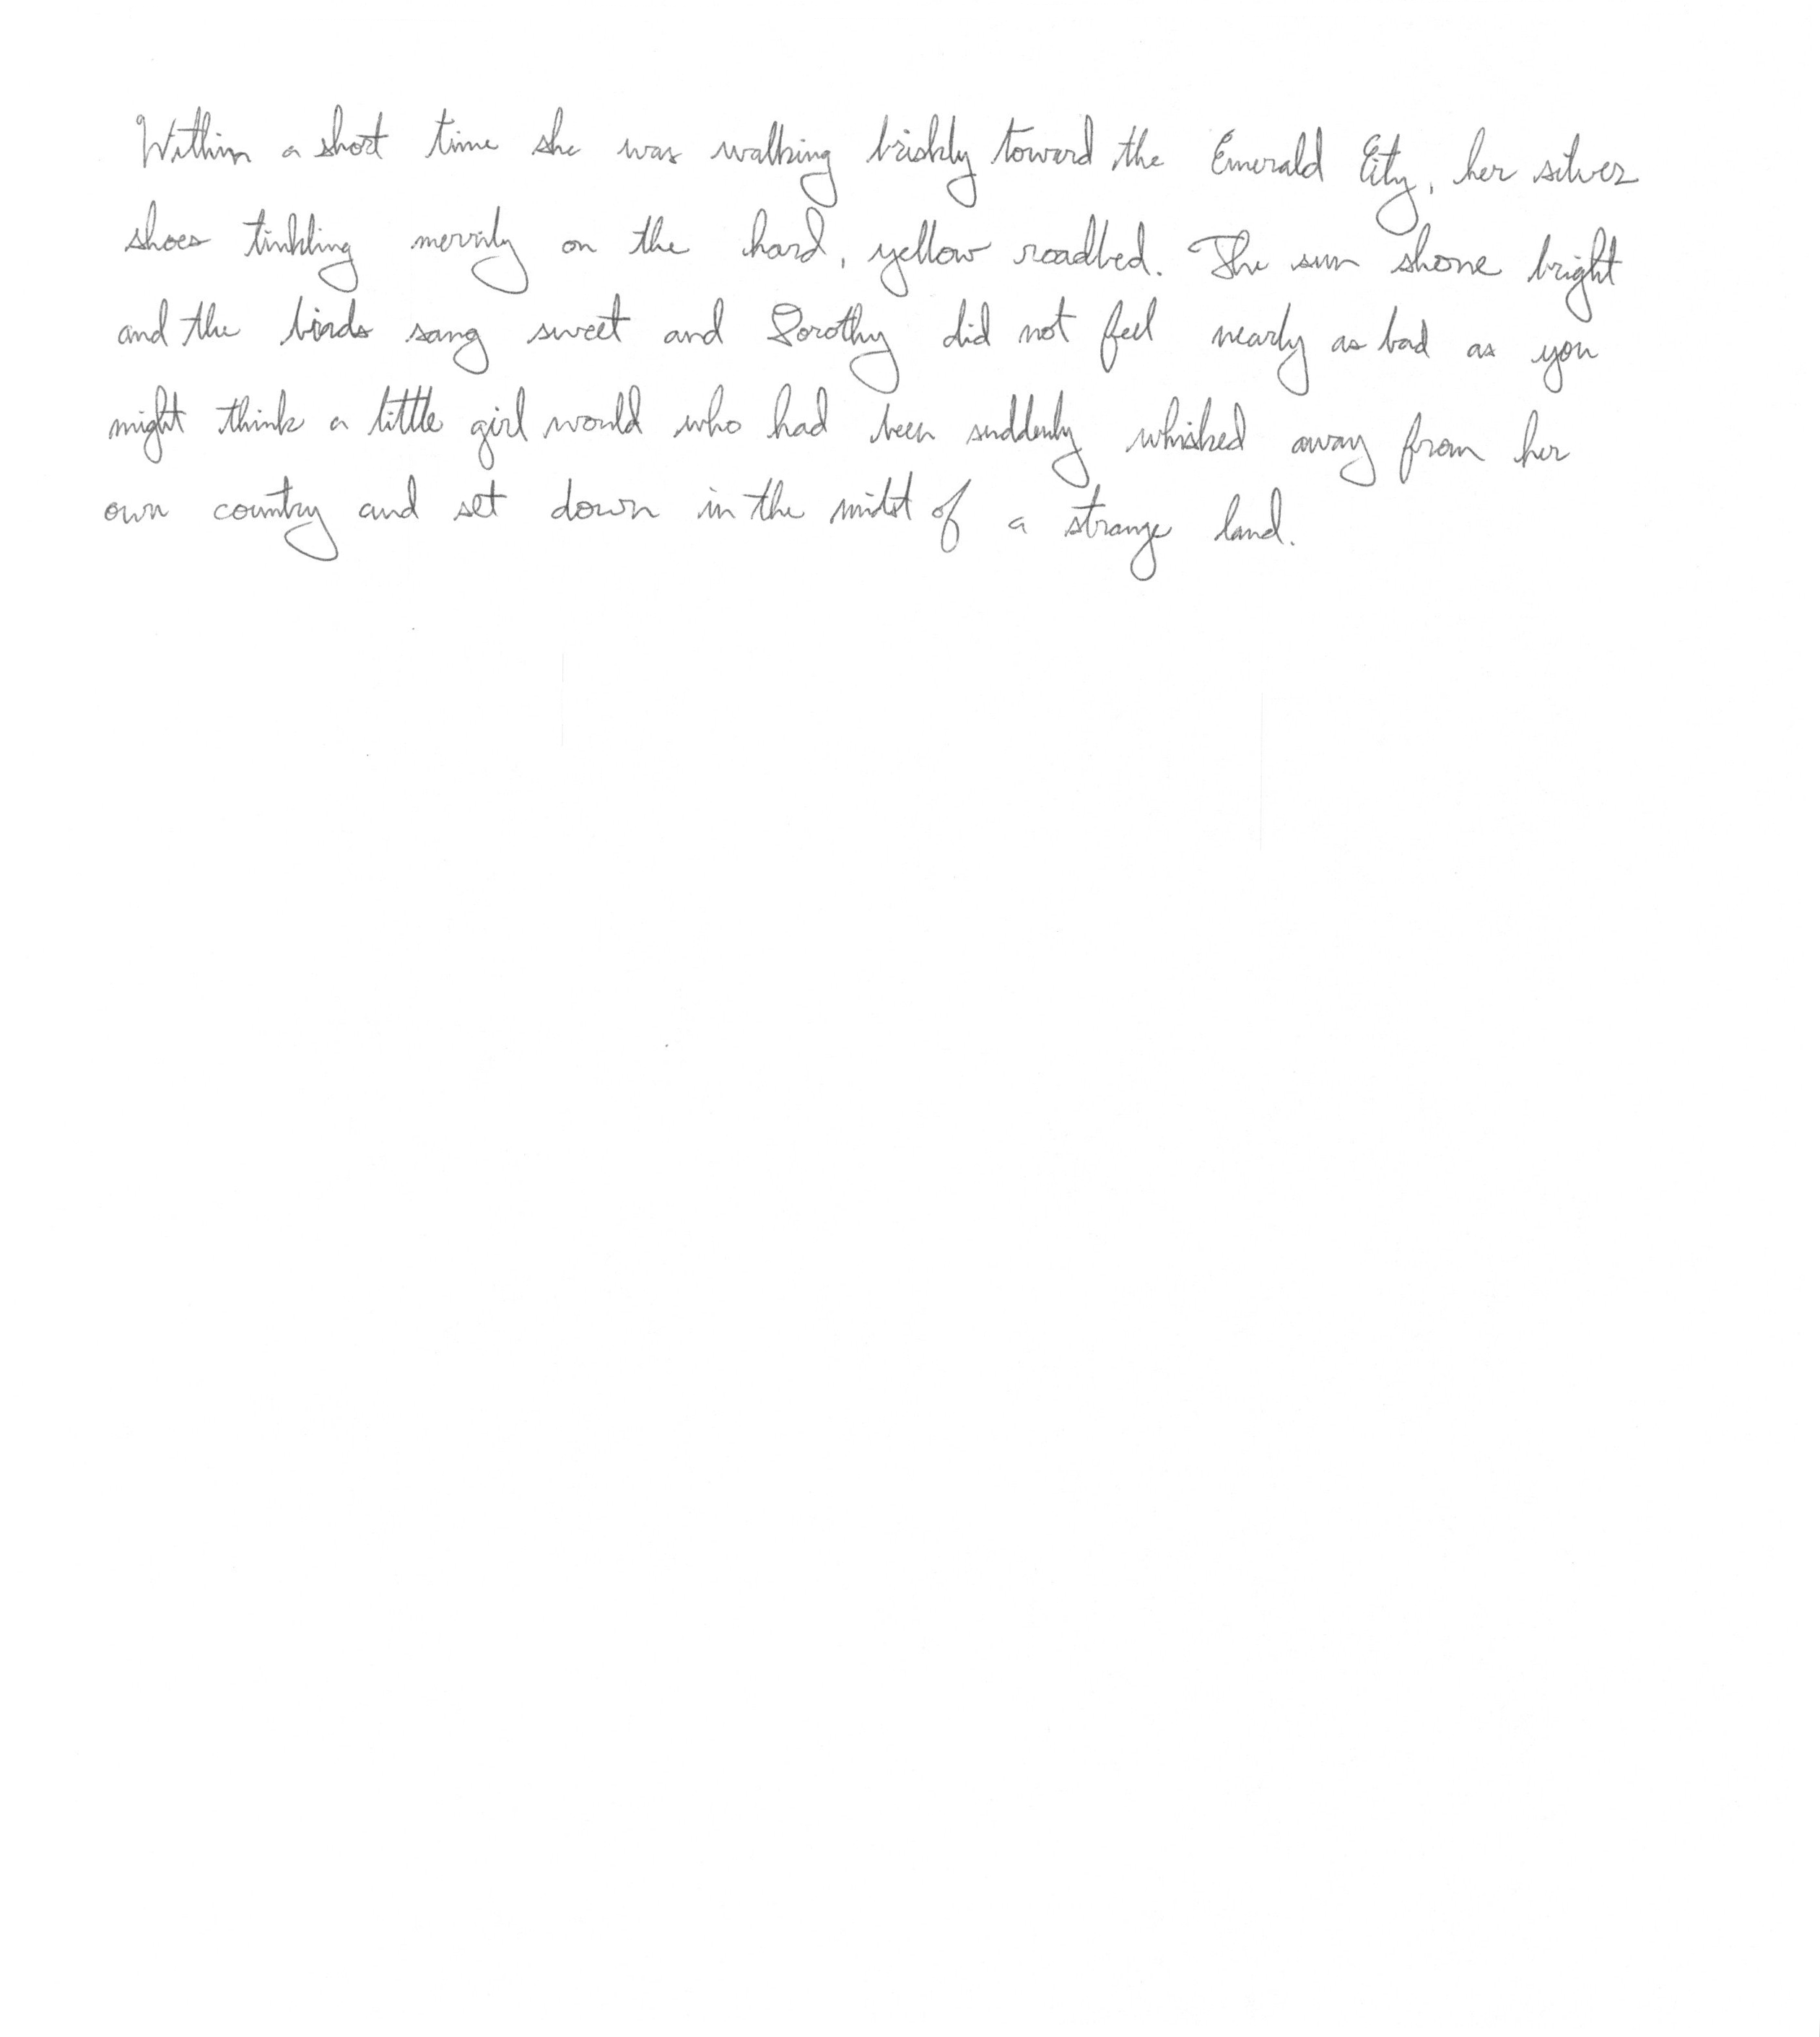 Within a short time she was walking briskly toward the Emerald City, her silver
shoes tinkling merrily on the hard, yellow roadbed. The sun shone bright
and the birds sang sweet and Dorothy did not feel nearly as bad as you
might think a little girl would who had been suddenly whisked away from her
own country and set down in the midst of a strange land.